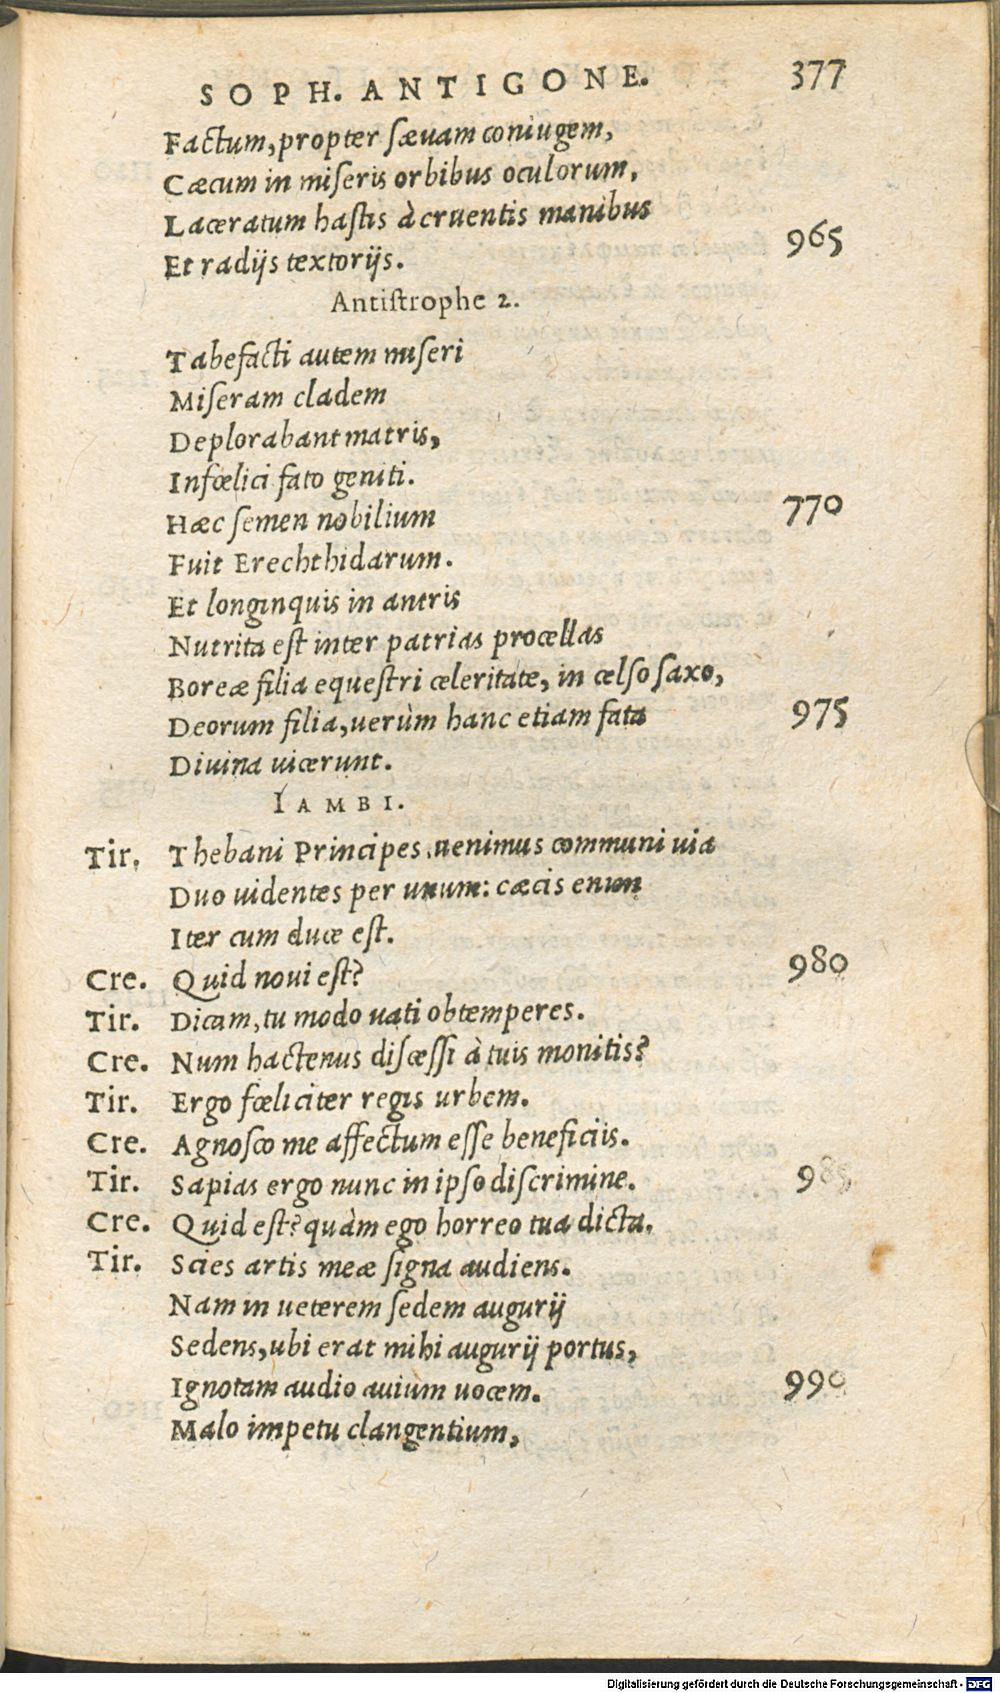 SOPH. ANTIGONE. 377
Factum, propter sæuam coniugem,
Cæcum in miseris orbibus oculorum,
Laceratum hastis à cruentis manibus 965
Et radijs textorijs.
Antistrophe 2.
Tabefacti autem miseri
Miseram cladem
Deplorabant matris,
Infœlici fato geniti.
Hæc semen nobilium 770
Fuit Erechthidarum.
Et longinquis in antris
Nutrita est inter patrias procellas
Boreæ filia equestri celeritate, in celso saxo,
Deorum filia, uerùm hanc etiam fata 975
Diuina uicerunt.
IAMBI.
Tir. Thebani Principes, uenimus communi uia
Duo uidentes per unum: cæcis enim
Iter cum duce est.
Cre. Quid noui est? 980
Tir. Dicam, tu modo uati obtemperes.
Cre. Num hactenus discessi à tuis monitis?
Tir. Ergo fœliciter regis urbem.
Cre. Agnosco me affectum esse beneficiis.
Tir. Sapias ergo nunc in ipso discrimine. 985
Cre. Quid est? quàm ego horreo tua dicta.
Tir. Scies artis meæ signa audiens.
Nam in ueterem sedem augurij
Sedens, ubi erat mihi augurij portus,
Ignotam audio auium uocem. 990
Malo impetu clangentium,
Digitalisierung gefördert durch die Deutsche Forschungsgemeinschaft - DFG